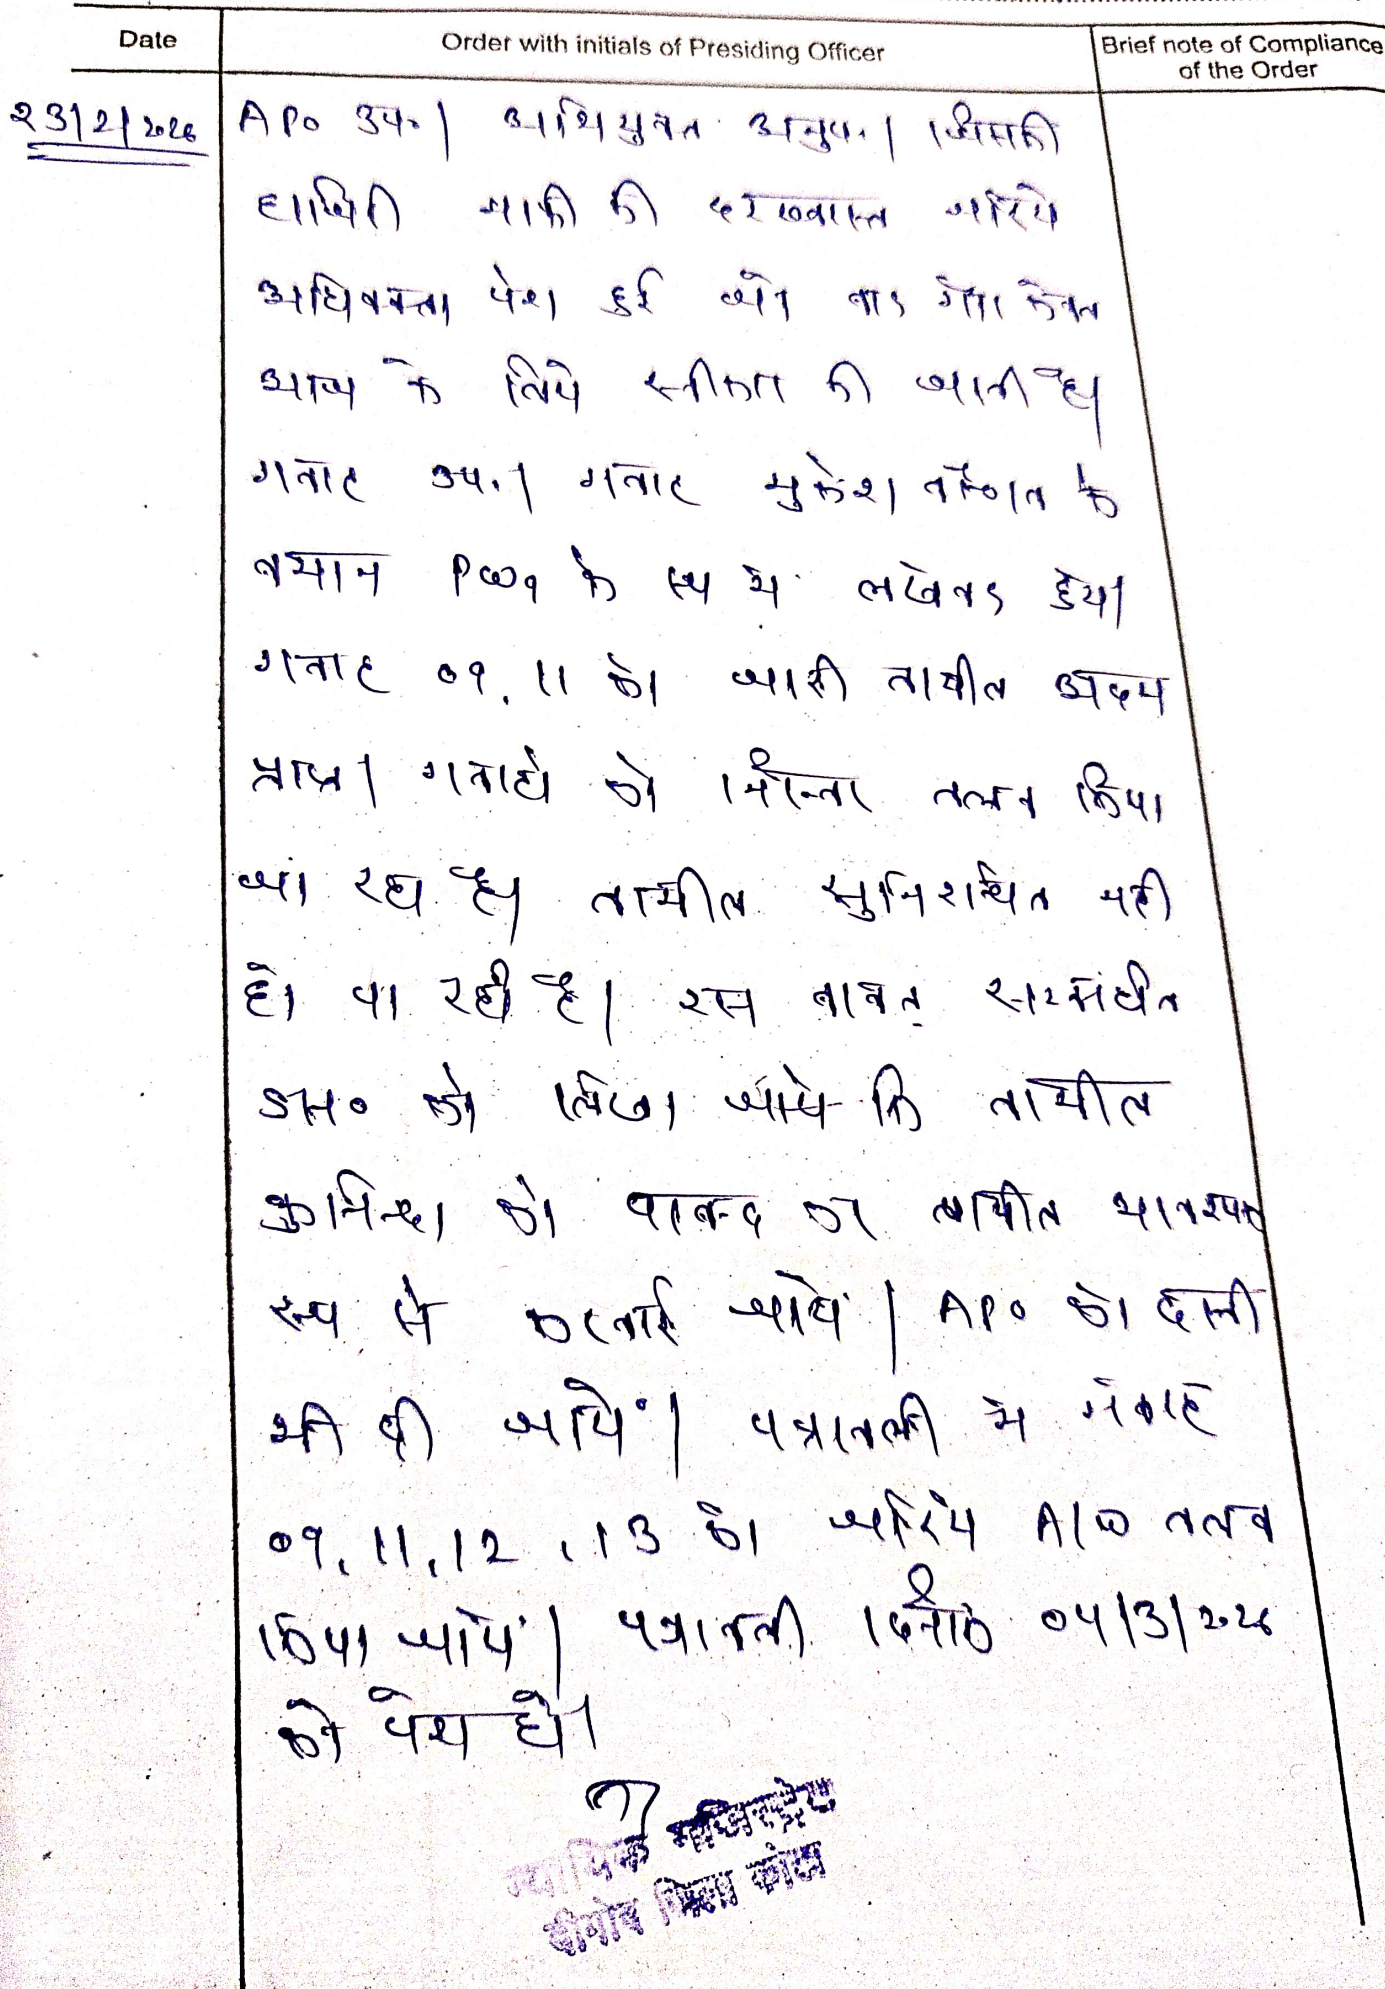 Date
Order with initials of Presiding Officer
Brief note of Compliance
of the Order
23/2/2026
APO उप०। अभियुक्त अनुप.। जिसकी
हाजिरी माफी की दरख्वास्त जरिये
अधिवक्ता पेश हुई जो बाद गौर केवल
आज के लिये स्वीकार की जाती है।
गवाह उप.। गवाह मुकेश के
बयान PW9 के रूप मे लेखबद्ध हुये।
गवाह 09, 11 को जारी तामील अदम
प्राप्त। गवाहो को निरन्तर तलब किया
जा रहा है। तामील सुनिश्चित नही
हो पा रही है। इस बाबत् सम्बंधित
को लिखा जाये कि तामील
कुनिन्दा को पाबन्द कर तामील आवश्यक
रूप से करवाई जाये। APO को दस्ती
भी दी जाये। पत्रावली मे गवाह
09, 11, 12, 13 को जरिये A/W तलब
किया जाये। पत्रावली दिनांक 04/3/2026
को पेश हो।
न्यायिक मजिस्ट्रेट
दीगोद जिला कोटा